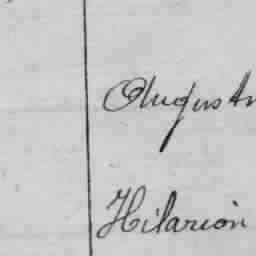 Augustn
Hilarión